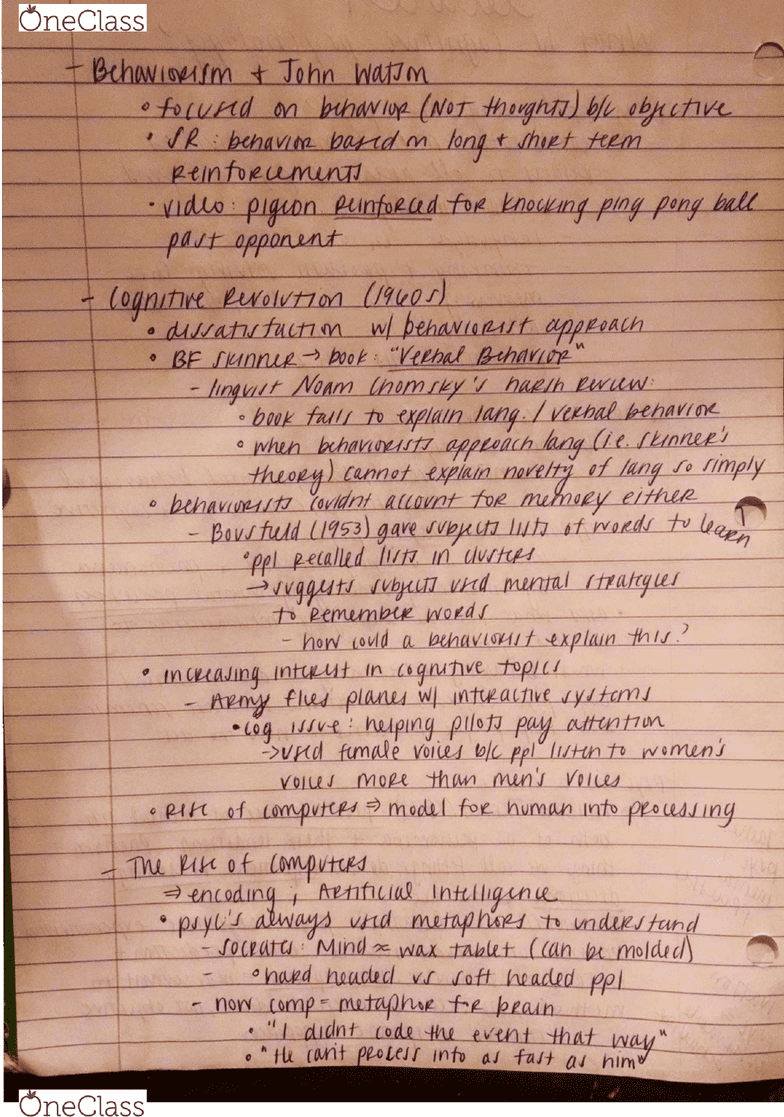 OneClass
- Behaviorism + John Watson
• focused on behavior (NOT thoughts) b/c objective
• SR: behavior based on long + short term
reinforcements
• video: pigeon reinforced for knocking ping pong ball
past opponent
- Cognitive Revolution (1960s)
• dissatisfaction w/ behaviorist approach
• BF Skinner → book: "Verbal Behavior"
- linguist Noam Chomsky's harsh review:
• book fails to explain lang. / verbal behavior
• when behaviorists approach lang (i.e. Skinner's
theory) cannot explain novelty of lang so simply
• behaviorists couldnt account for memory either
- Bousfield (1953) gave subjects lists of words to learn
• ppl recalled lists in clusters
→ suggests subjects used mental strategies
to remember words
- how could a behaviorist explain this?
• increasing interest in cognitive topics
- Army flies planes w/ interactive systems
• cog issue: helping pilots pay attention
→ used female voices b/c ppl listen to women's
voices more than men's voices
• rise of computers ⇒ model for human info processing
- The Rise of Computers
⇒ encoding, Artificial Intelligence
• psyc's always used metaphors to understand
- Socrates: Mind ≈ wax tablet (can be molded)
- • hard headed vs soft headed ppl
- now comp = metaphor for brain
• "I didnt code the event that way"
• "He can't process info as fast as him"
OneClass